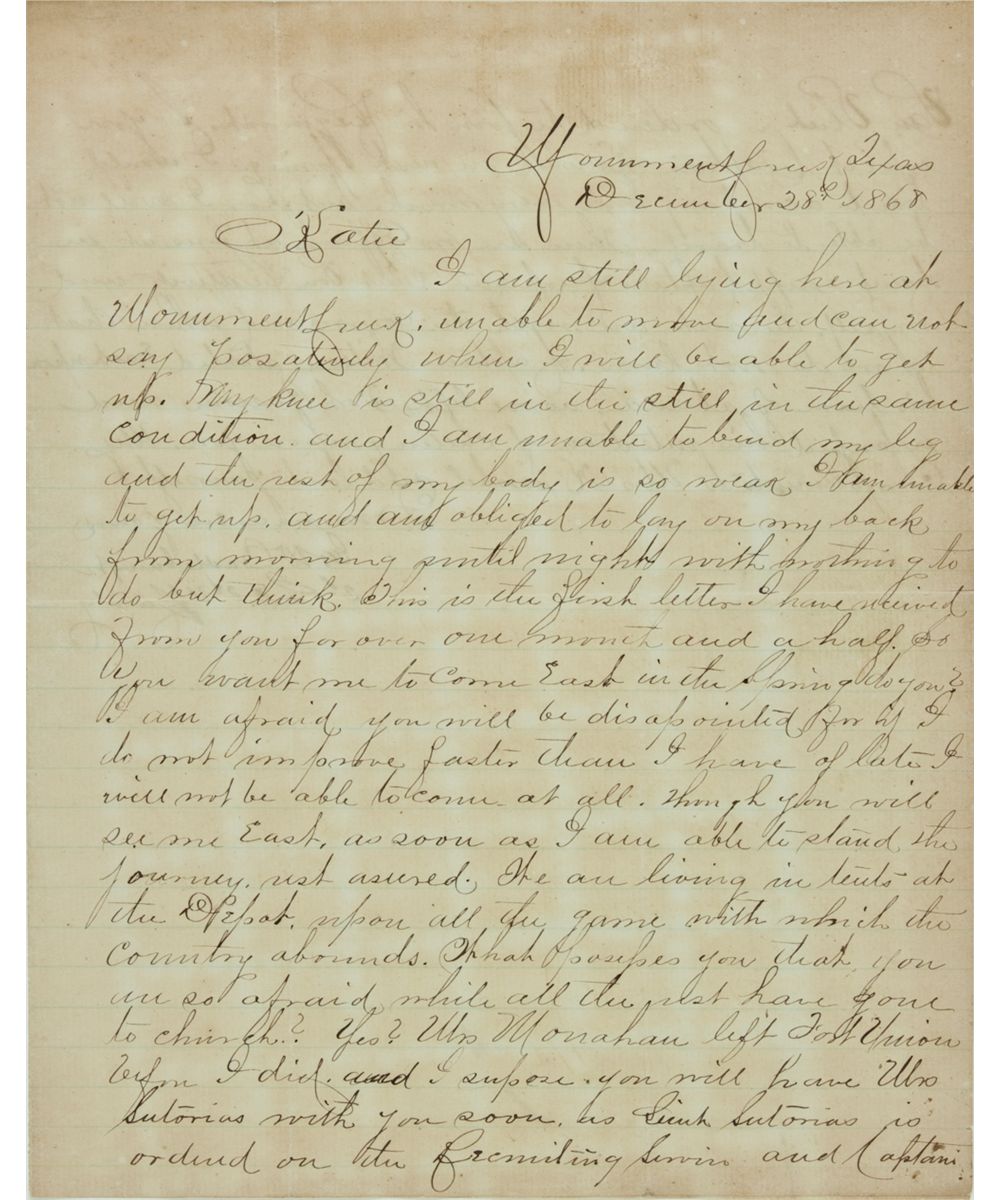 Monument Creek Texas
December 28th 1868
Katie
I am still lying here at
Monument Creek, unable to move and can not
say posatively when I will be able to get
up. My knee is still in the still in the same
condition. and I am unable to bend my leg
and the rest of my body is so weak I am unable
to get up. and am obliged to lay on my back
from morning until night with nothing to
do but think. This is the first letter I have received
from you for over one month and a half. So
you want me to come East in the Spring to you?
I am afraid you will be disapointed for if I
do not improve faster than I have of late I
will not be able to come at all. though you will
see me East, as soon as I am able to stand the
journey. rest asured. We are living in tents at
the Depot, upon all the game with which the
Country abounds. What posesses you that you
are so afraid while all the rest have gone
to church? Yes? Mrs Monahan left Fort Union
before I did. and I supose you will have Mrs
Sutorias with you soon, as Lieut Sutorias is
ordered on the Recruiting Service and Captain